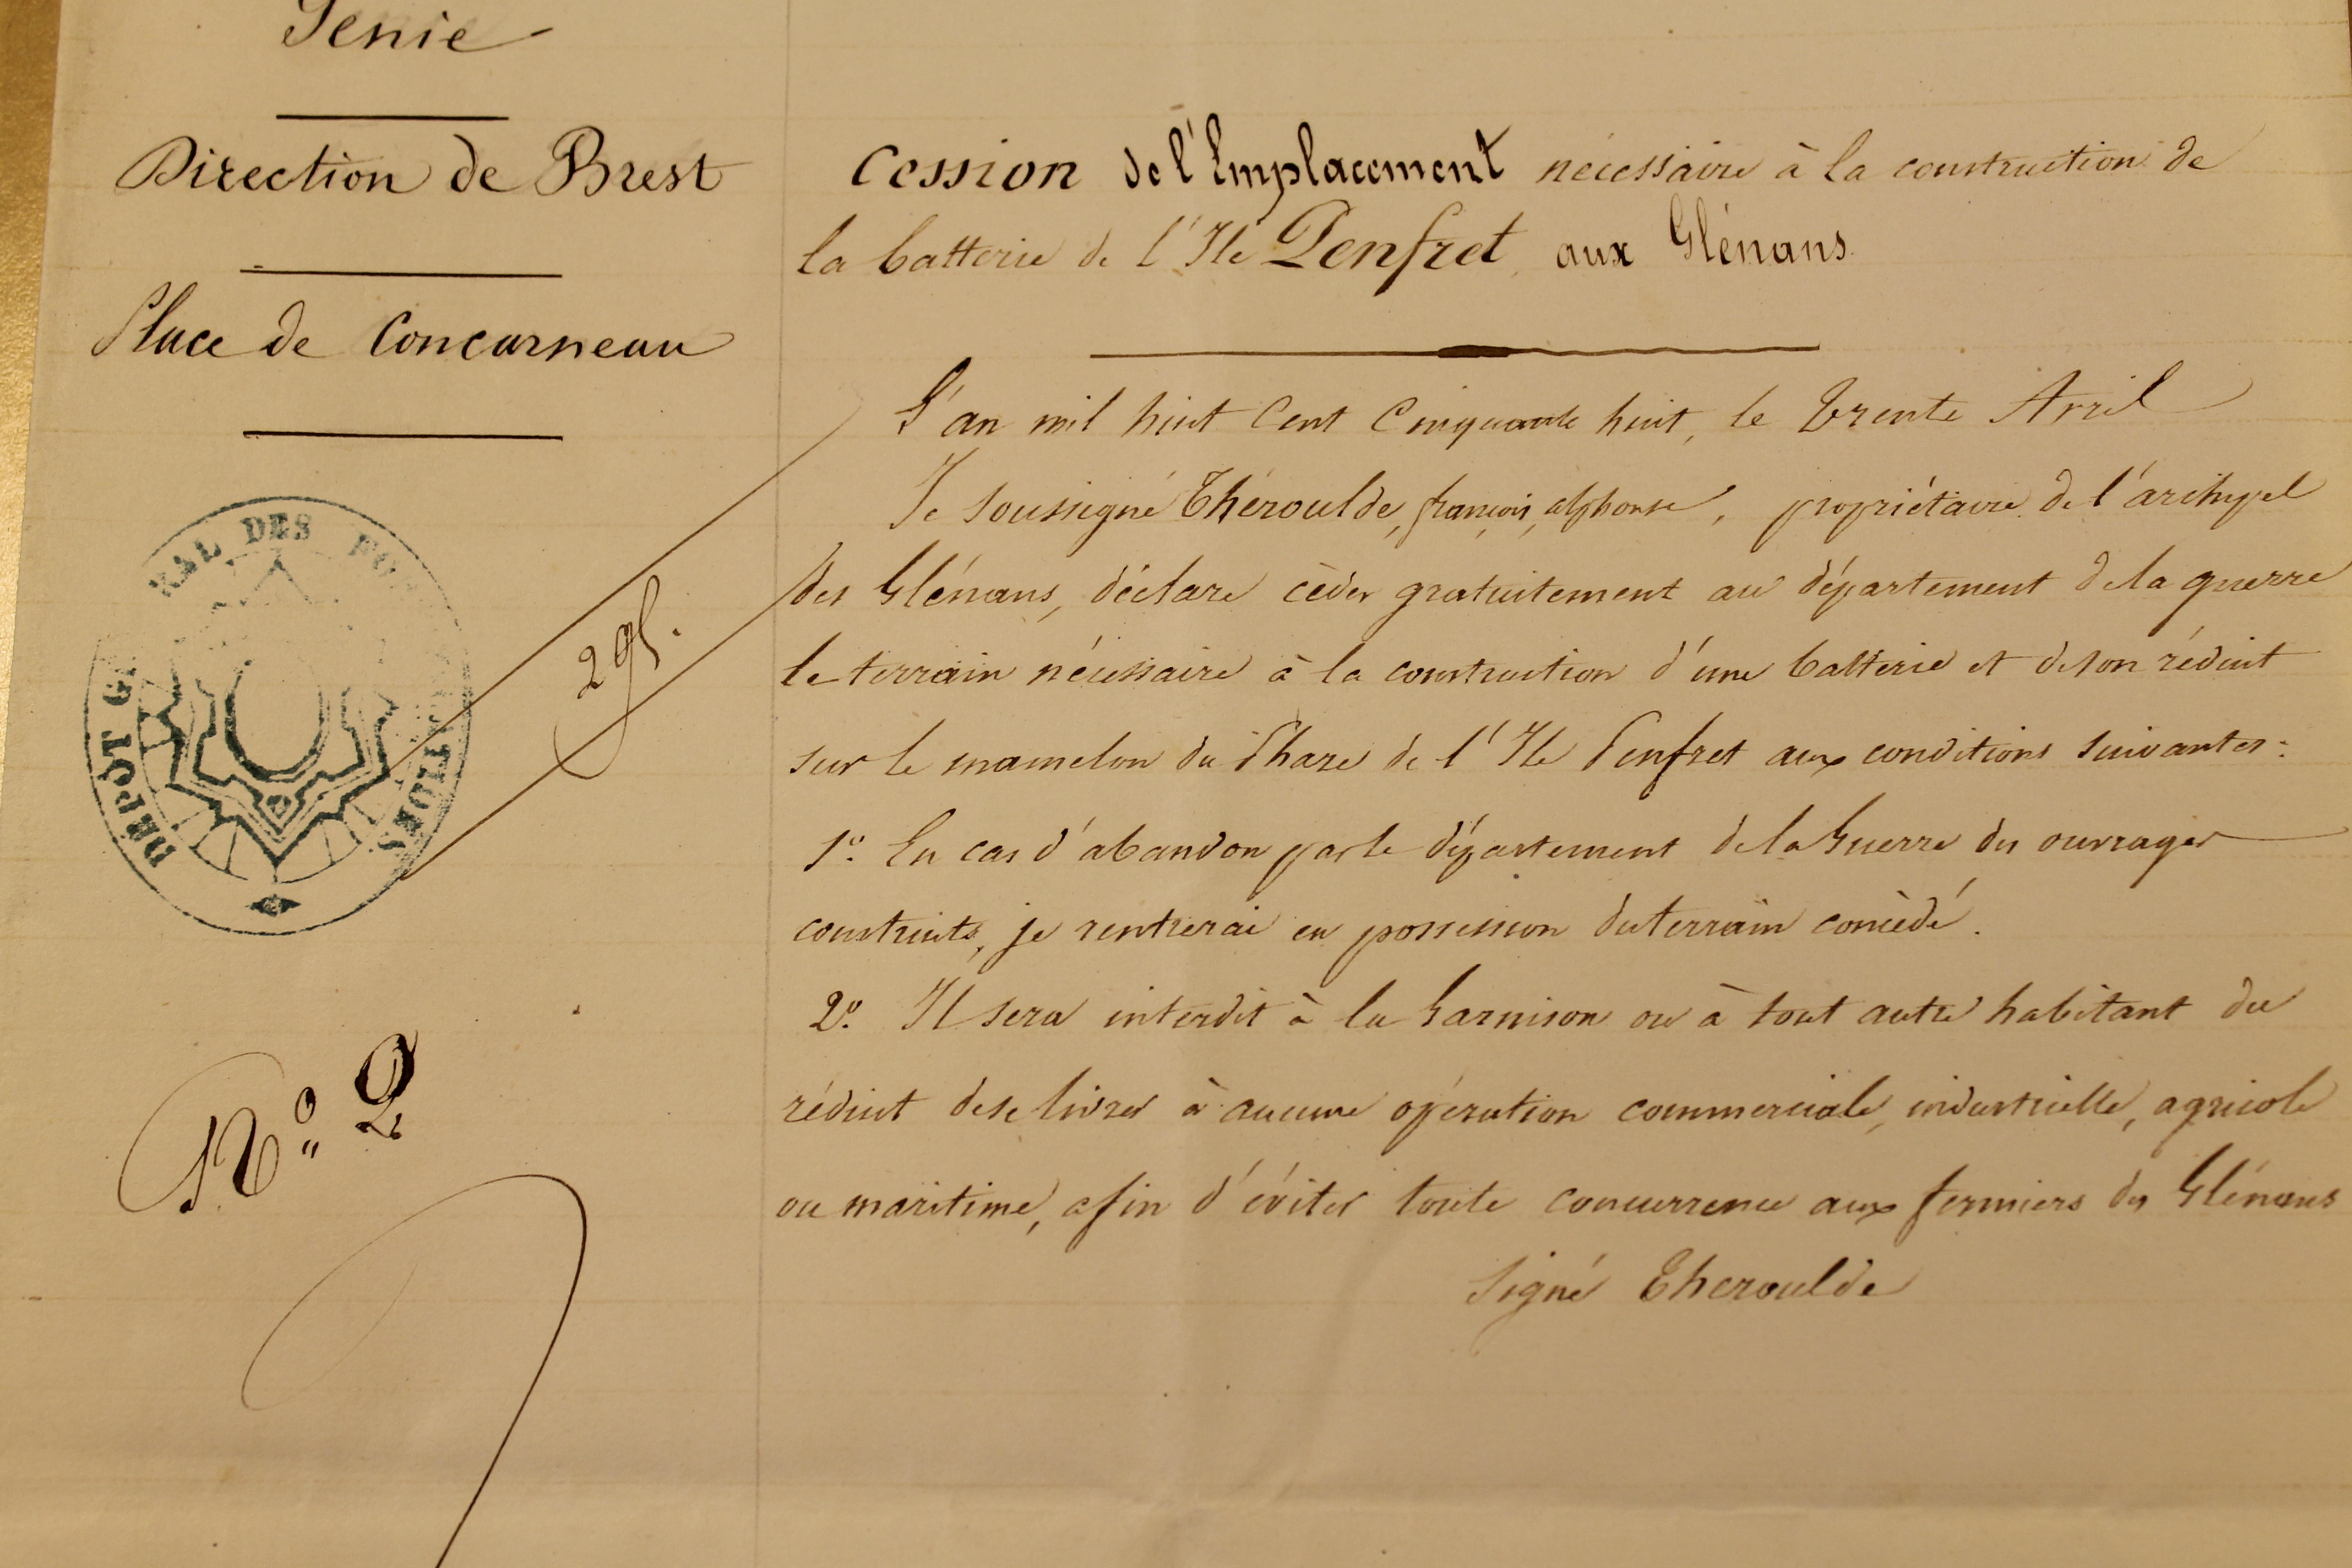 Génie
Direction de Brest
Place de Concarneau
DÉPÔT G RAL DES FO
295.
N° 2
Cession de l'Emplacement nécessaire à la construction de
la batterie de l'Ile Penfret, aux Glénans.
L'an mil huit Cent Cinquante huit, le trente Avril
Je soussigné Théroulde, françois, alphonse, propriétaire de l'archipel
des Glénans, déclare cèder gratuitement au département de la guerre
le terrain nécessaire à la construction d'une batterie et de son réduit
sur le mamelon du Phare de l'Ile Penfret aux conditions suivantes:
1° En cas d'abandon par le département de la Guerre des ouvrages
construits, je rentrerai en possession du terrain concèdé.
2° Il sera interdit à la Garnison ou à tout autre habitant du
réduit de se livrer à aucune opération commerciale, industrielle, agricole
ou maritime, afin d'éviter toute concurrence aux fermiers des Glénans
Signé Theroulde